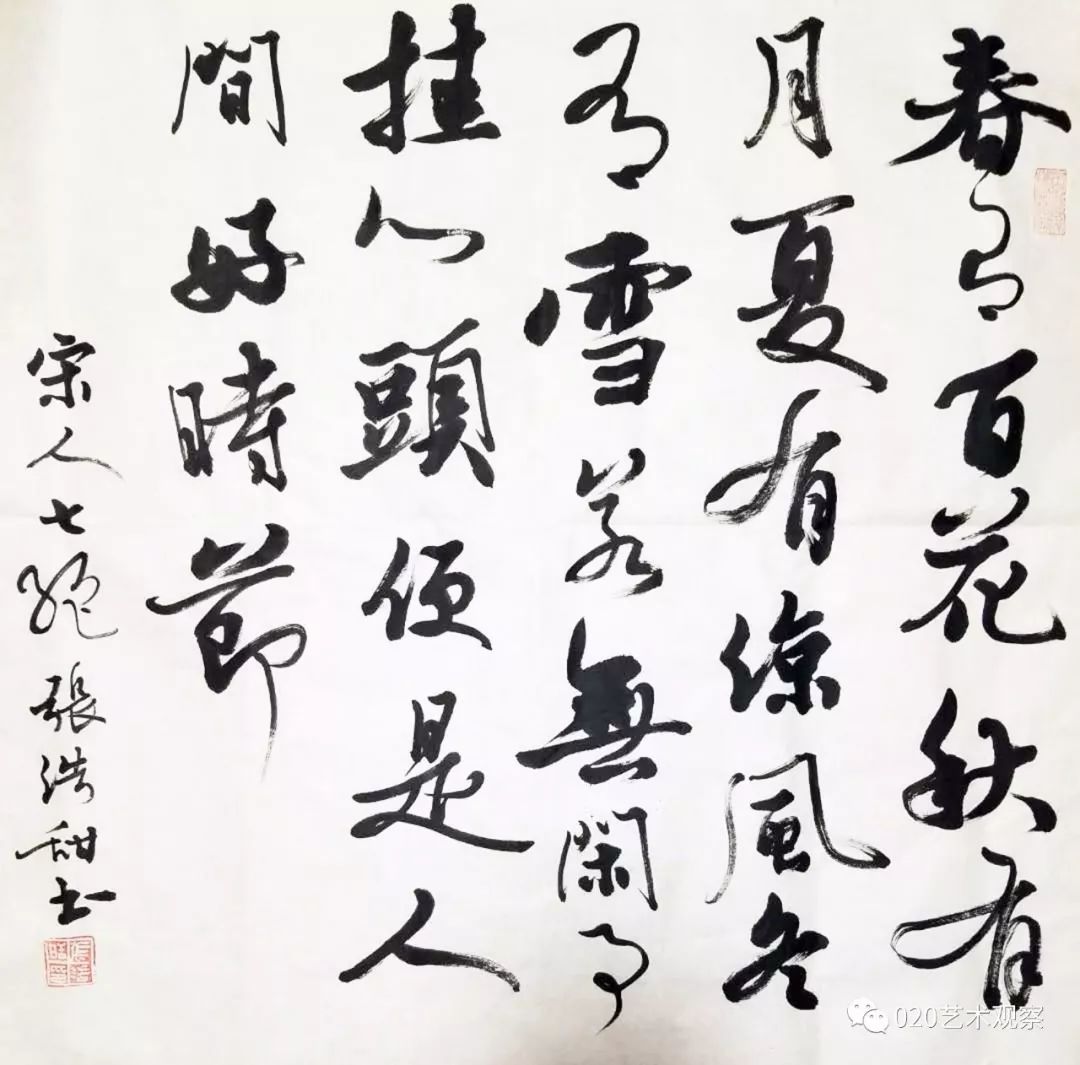 春有百花秋有
月夏有涼風冬
有雪若無閑事
挂心頭便是人
間好時節
宋人七絕張浩甜书
020艺术观察